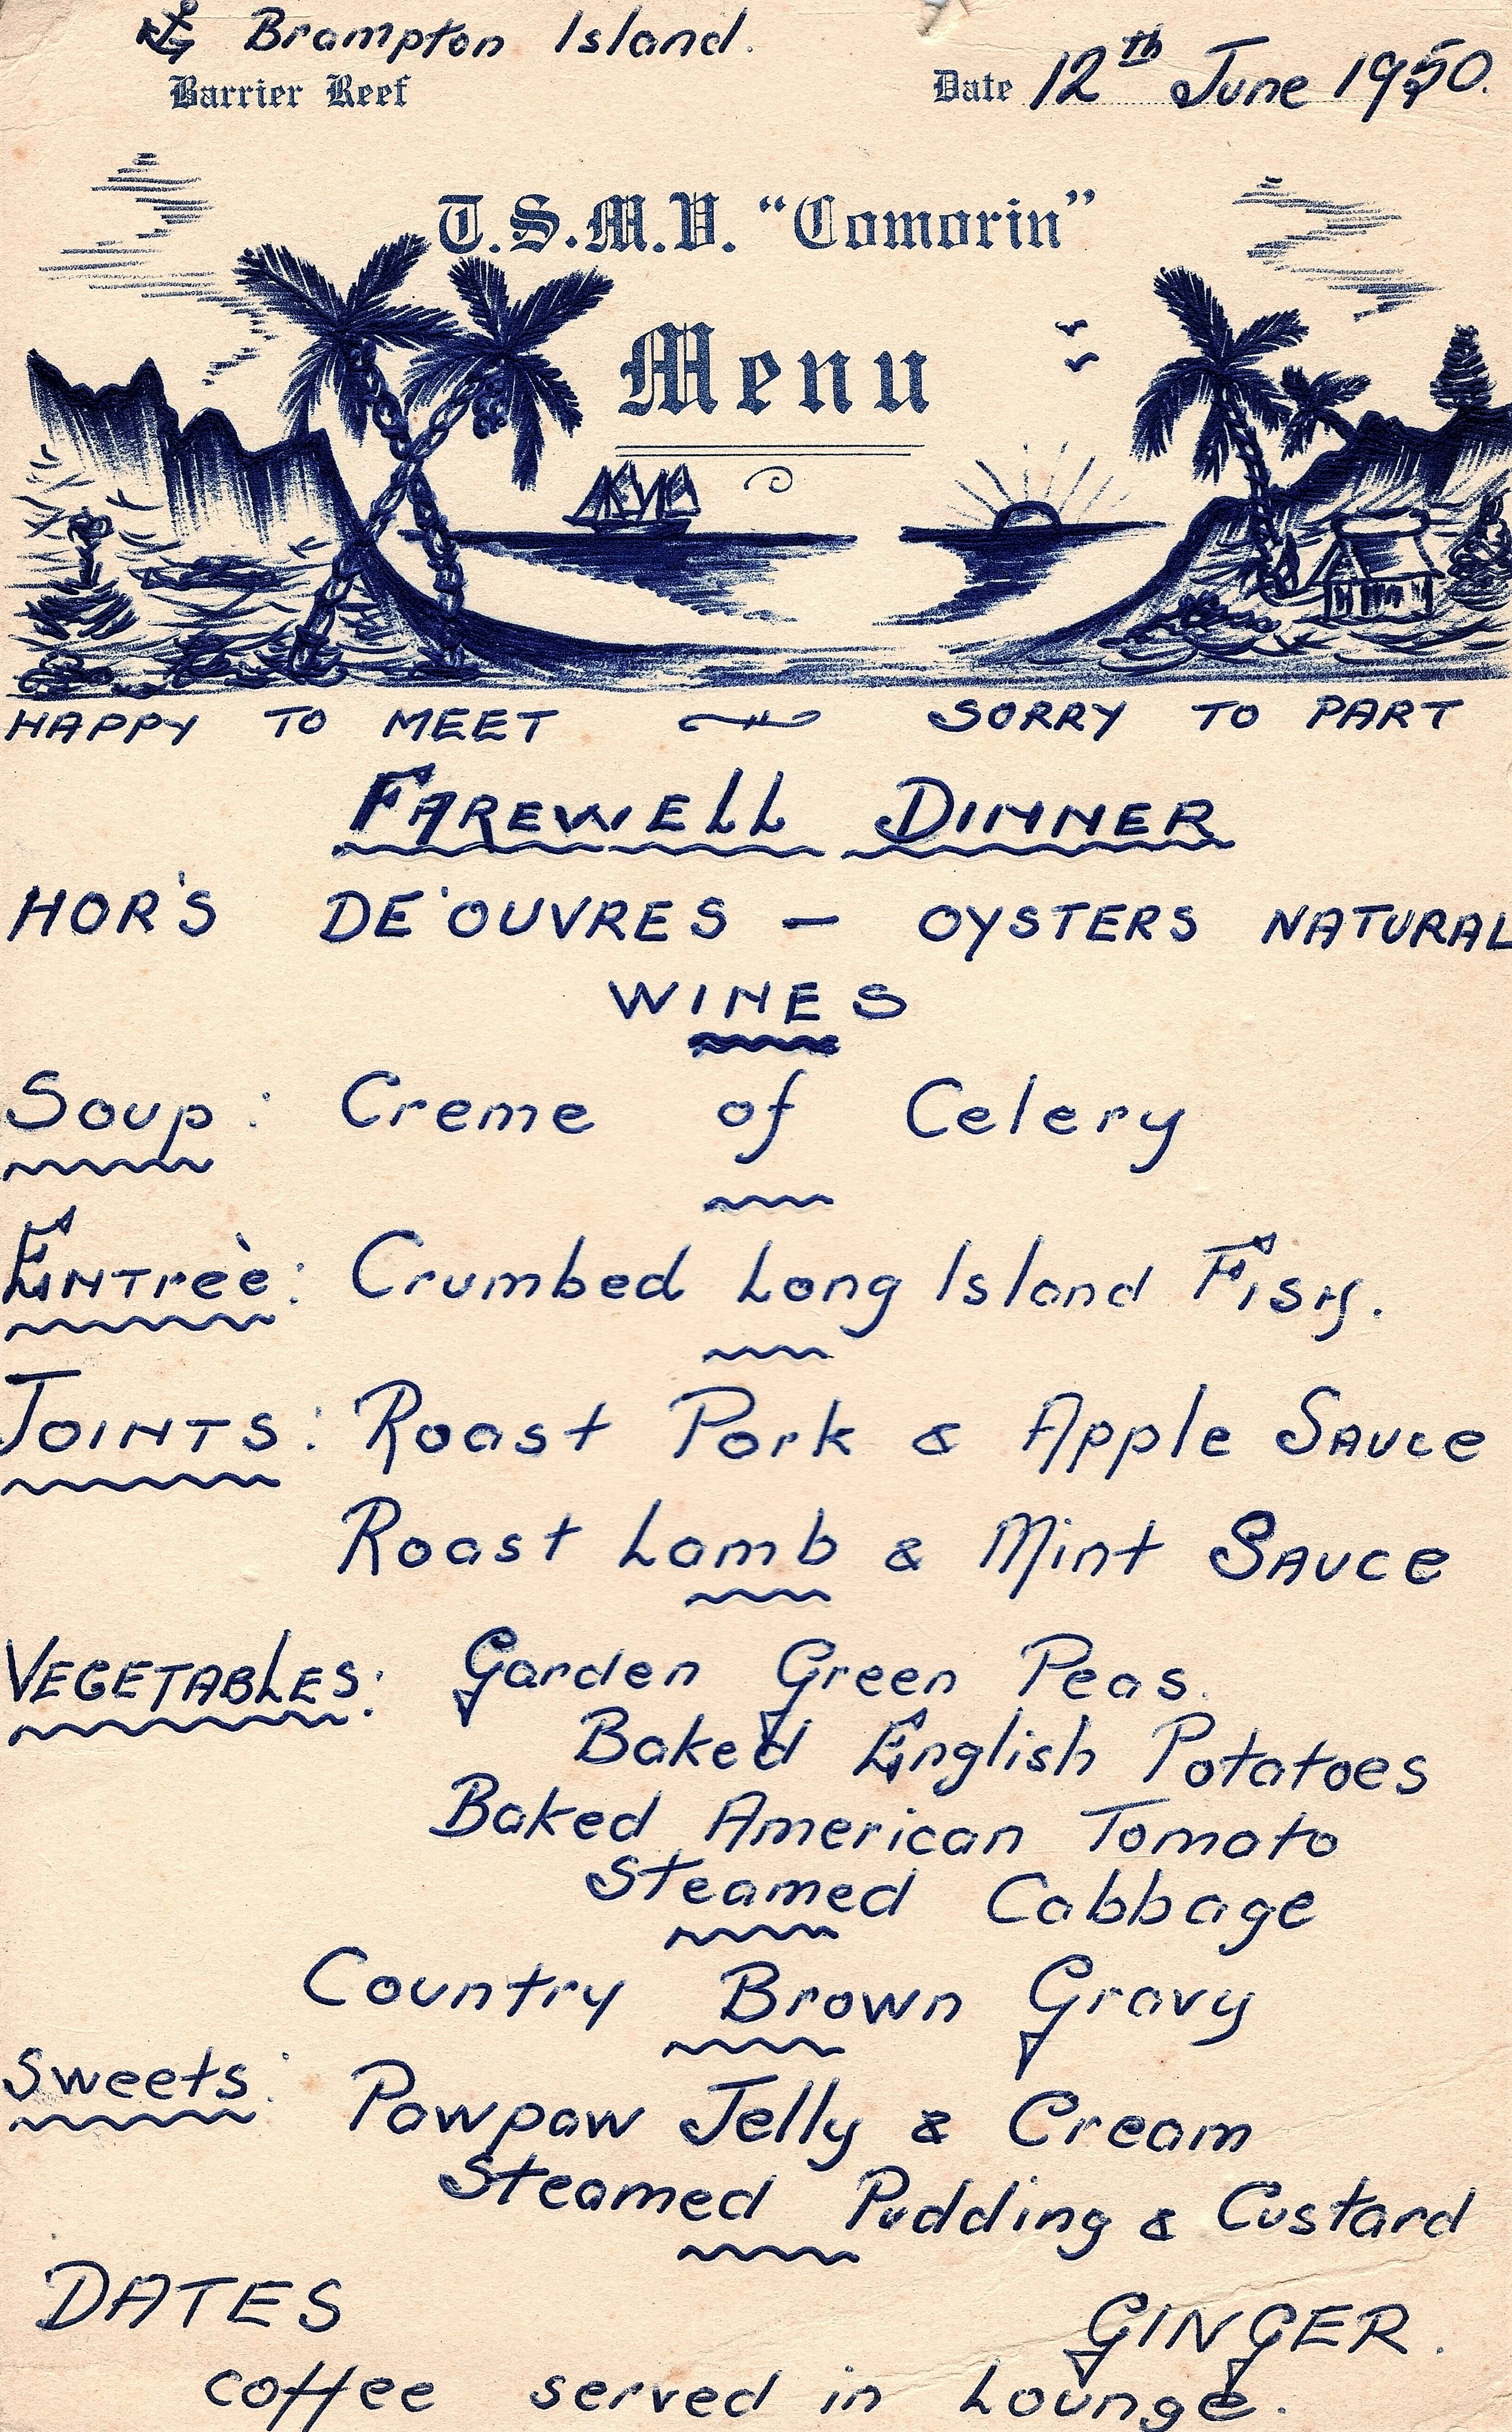 Brampton Island.
Barrier Reef
Date 12th June 1950.
T.S.M.V. “Comorin”
Menu
HAPPY TO MEET SORRY TO PART
FAREWELL DINNER
HOR'S DE'OUVRES — OYSTERS NATURAL
WINES
Soup: Creme of Celery
ENTreè: Crumbed Long Island Fish.
JOINTS: Roast Pork & Apple Sauce
Roast Lamb & Mint Sauce
VEGETABLES: Garden Green Peas.
Baked English Potatoes
Baked American Tomato
Steamed Cabbage
Country Brown Gravy
Sweets: Pawpaw Jelly & Cream
Steamed Pudding & Custard
DATES GINGER.
coffee served in Lounge.